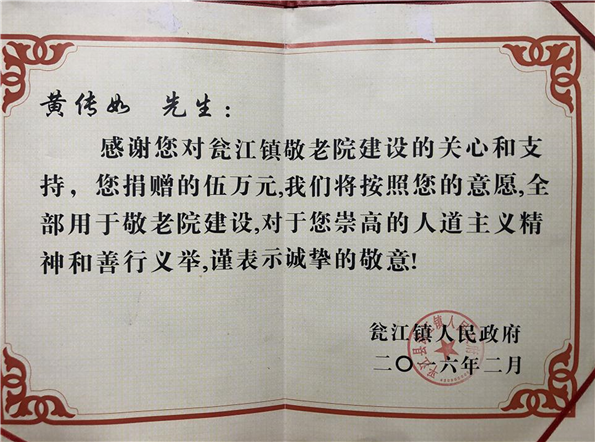 黄传如 先生：
感谢您对瓮江镇敬老院建设的关心和支
持，您捐赠的伍万元,我们将按照您的意愿,全
部用于敬老院建设,对于您崇高的人道主义精
神和善行义举,谨表示诚挚的敬意!
瓮江镇人民政府
二〇一六年二月